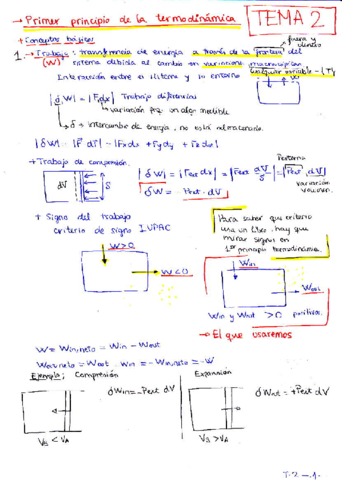 → Primer principio de la termodinámica
TEMA 2
+ Conceptos básicos
fuera y dentro
1 → Trabajo: transferencia de energía a través de la frontera del
(W) sistema debida al cambio en variables macroscópicas
Interacción entre el sistema y su entorno
cualquier variable - (T)
|δW| = |F dx| Trabajo diferencial
variación por un algo medible
δ → intercambio de energía, no está almacenada.
|δW| = |F dr| = |Fxdx + Fydy + Fzdz|
+ Trabajo de compresión.
dV
S
|δW| = |Fext dx| = |Fext dV/S| = |Pext · dV|
Pentorno
variación volumen.
δW = -Pext · dV
+ Signo del trabajo
criterio de signo IUPAC
W>0
W<0
Para saber que criterio
usa un libro hay que
mirar signos en
1er principio termodinámica.
Win
Wout
Win y Wout > 0 positivos.
→ El que usaremos
W = Win,neto = Win - Wout
Wout,neto = Wout - Win = -Win,neto = -W
Ejemplo: Compresión
Expansión
δWin = -Pext dV
δWout = +Pext dV
VB < VA
VB > VA
T-2-1-